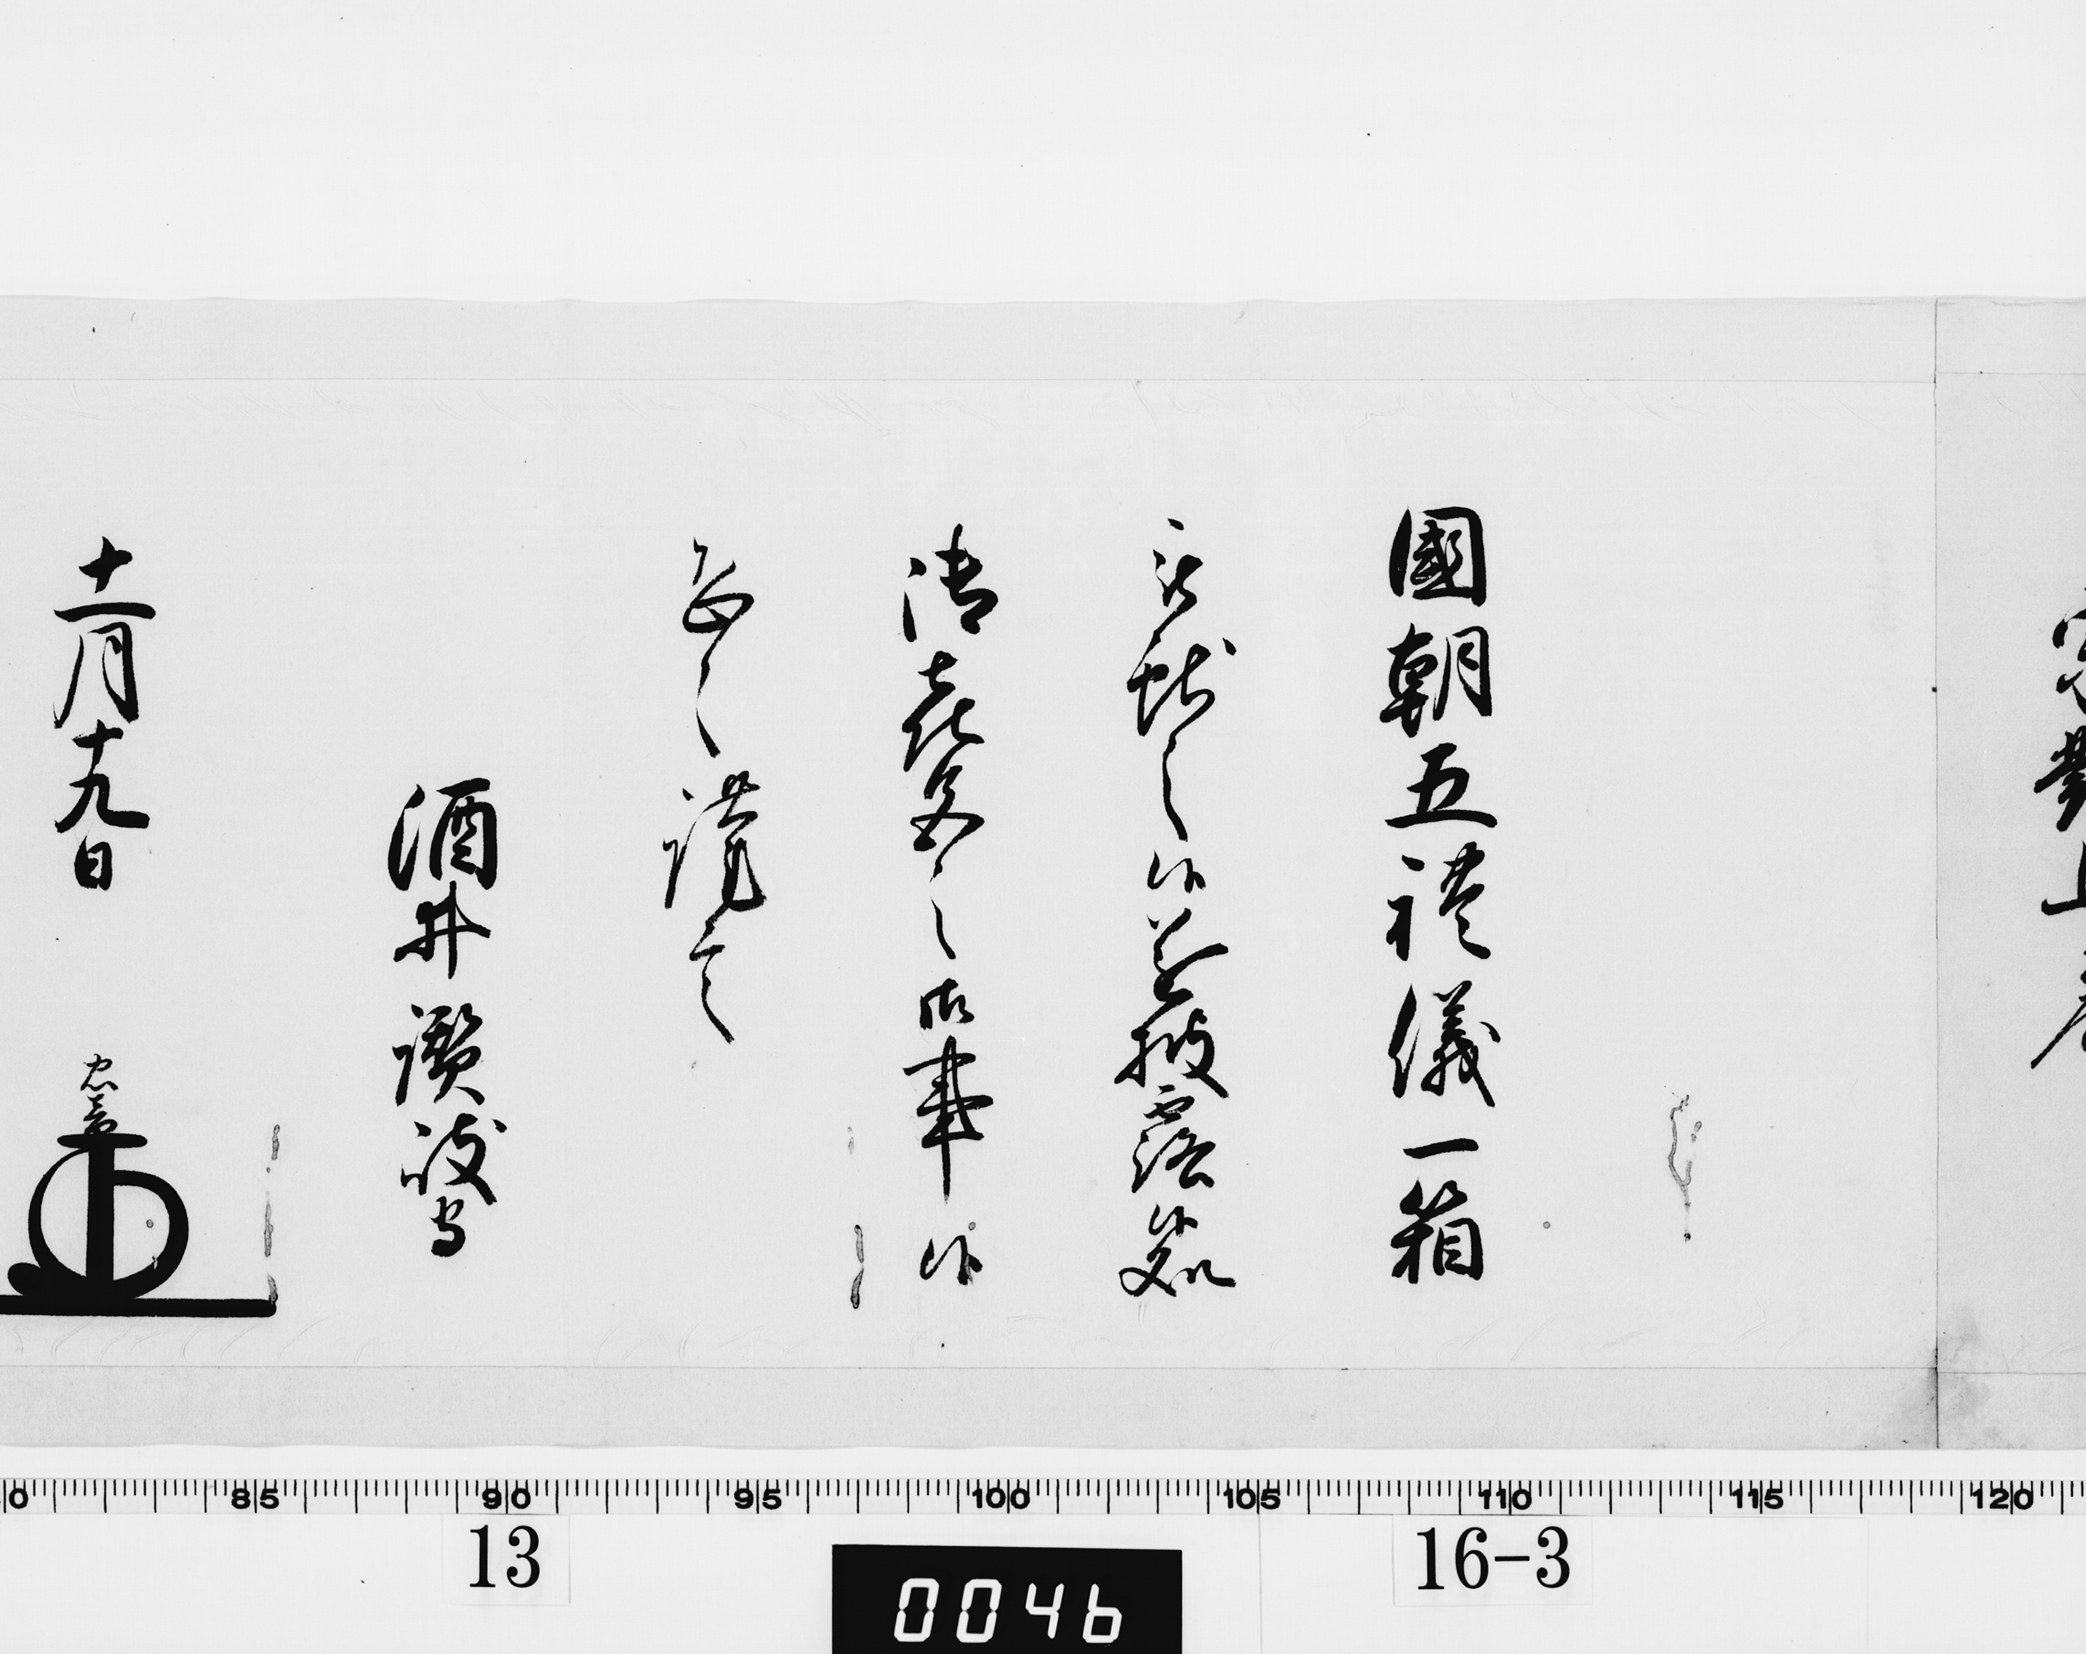 國朝五禮儀一箱
被獻之候遂披露候処
御喜色之御事候
恐々謹言
酒井讃岐守
十一月十九日
忠
80 85 90 95 100 105 110 115 120
13
16-3
0046